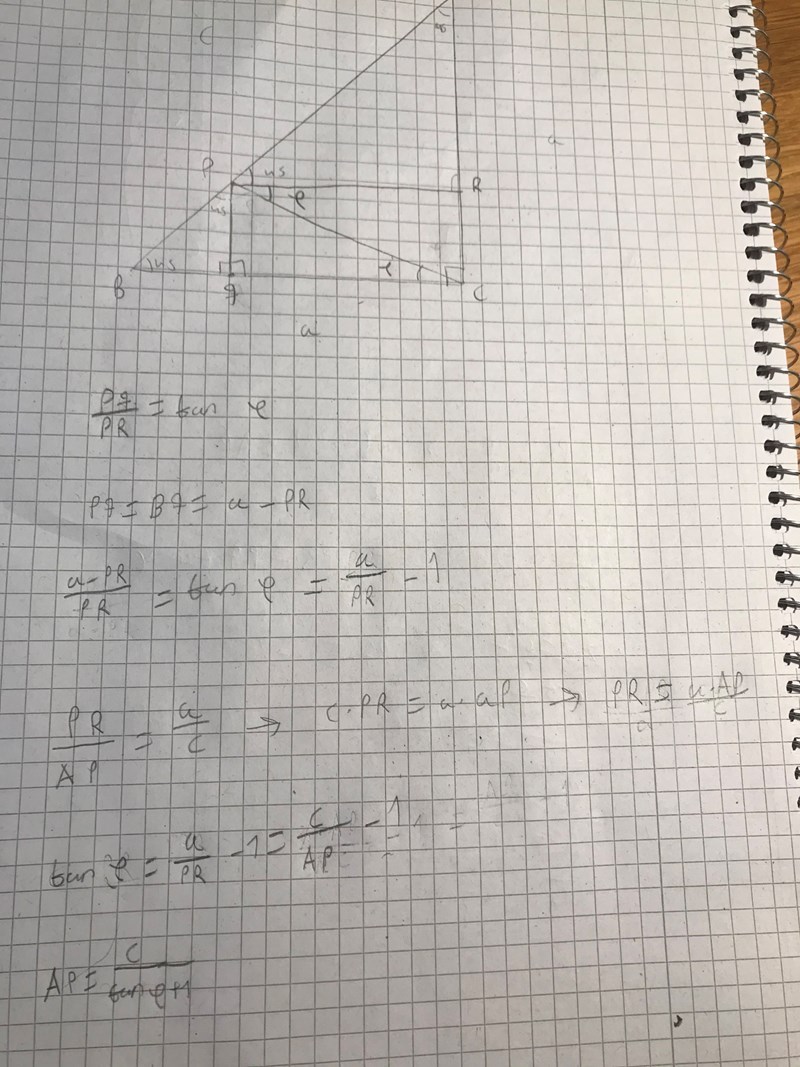 C
45
P 45 R
φ
45
B 45 φ C
a
Pq/PR = tan φ
Pq = Bq = a - PR
a-PR/PR = tan φ = a/PR - 1
PR/AP = a/c → c·PR = a·aP → PR = a·AP/c
tan φ = a/PR - 1 = c/AP - 1
AP = c/tan φ+1